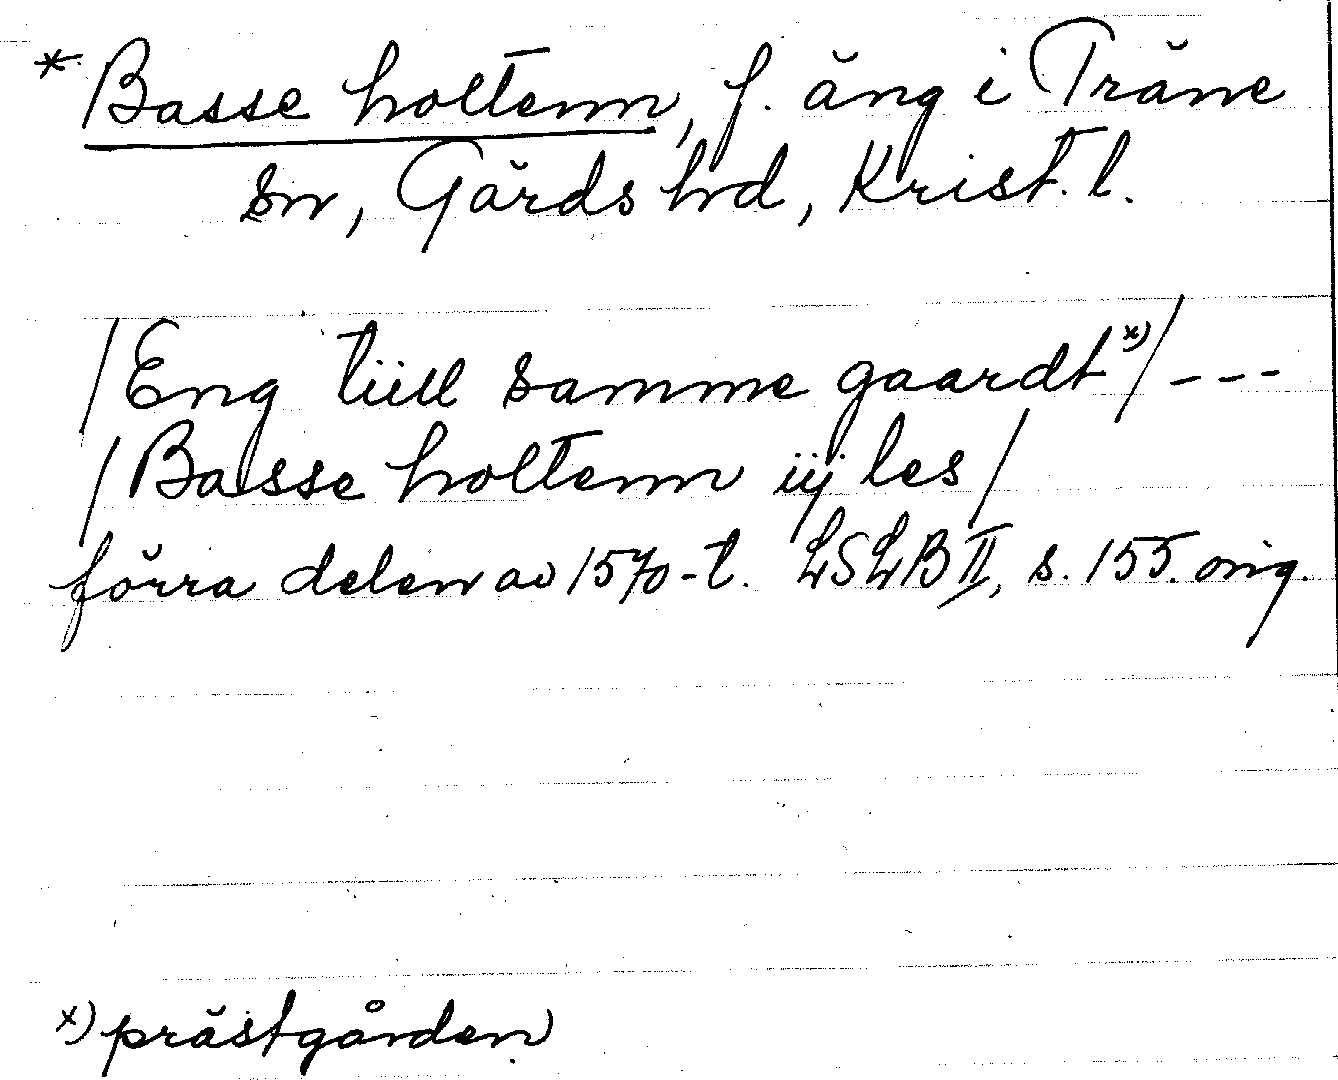 * Basse holtenn, f. äng i Träne
sn, Gärds hd, Krist. l.
/Eng tiill samme gaardt x)/ ---
/Basse holtenn iij les/
förra delen av 1570-t. LSLB II, s. 155. orig.
x) prästgården